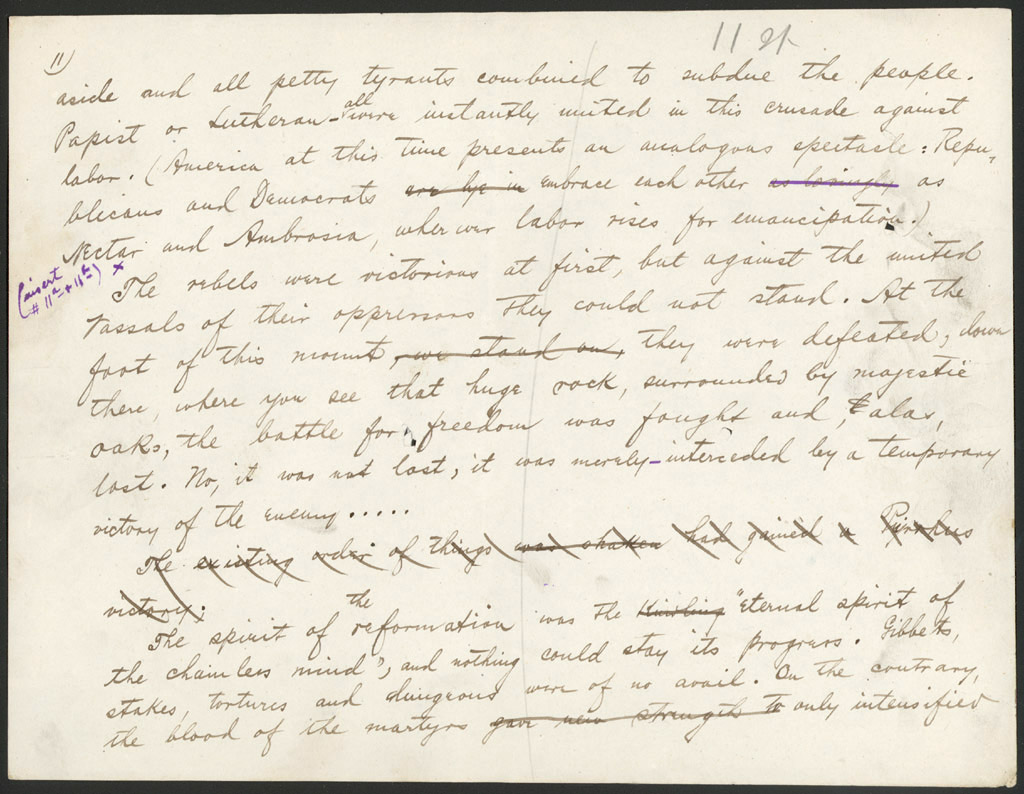 11)
aside and all petty tyrants combined to subdue the people.
Papist or Lutheran - all were instantly united in this crusade against
labor. (America at this time presents an analogous spectacle: Repu-
blicans and Democrats embrace each other as
Nectar and Ambrosia, wherever labor rises for emancipation.)
(insert # 11a + 11b) x
The rebels were victorious at first, but against the united
vassals of their oppressors they could not stand. At the
foot of this mount, we stand on, they were defeated; down
there, where you see that huge rock, surrounded by majestic
oaks, the battle for freedom was fought and, alas,
lost. No, it was not lost; it was merely - interceded by a temporary
victory of the enemy.....
The existing order of things was shaken had gained a Pirrhus
victory:
The spirit of the reformation was the "Eternal spirit of
the chainless mind", and nothing could stay its progress. Gibbets,
stakes, tortures and dungeons were of no avail. On the contrary,
the blood of the martyrs gave new strength to only intensified